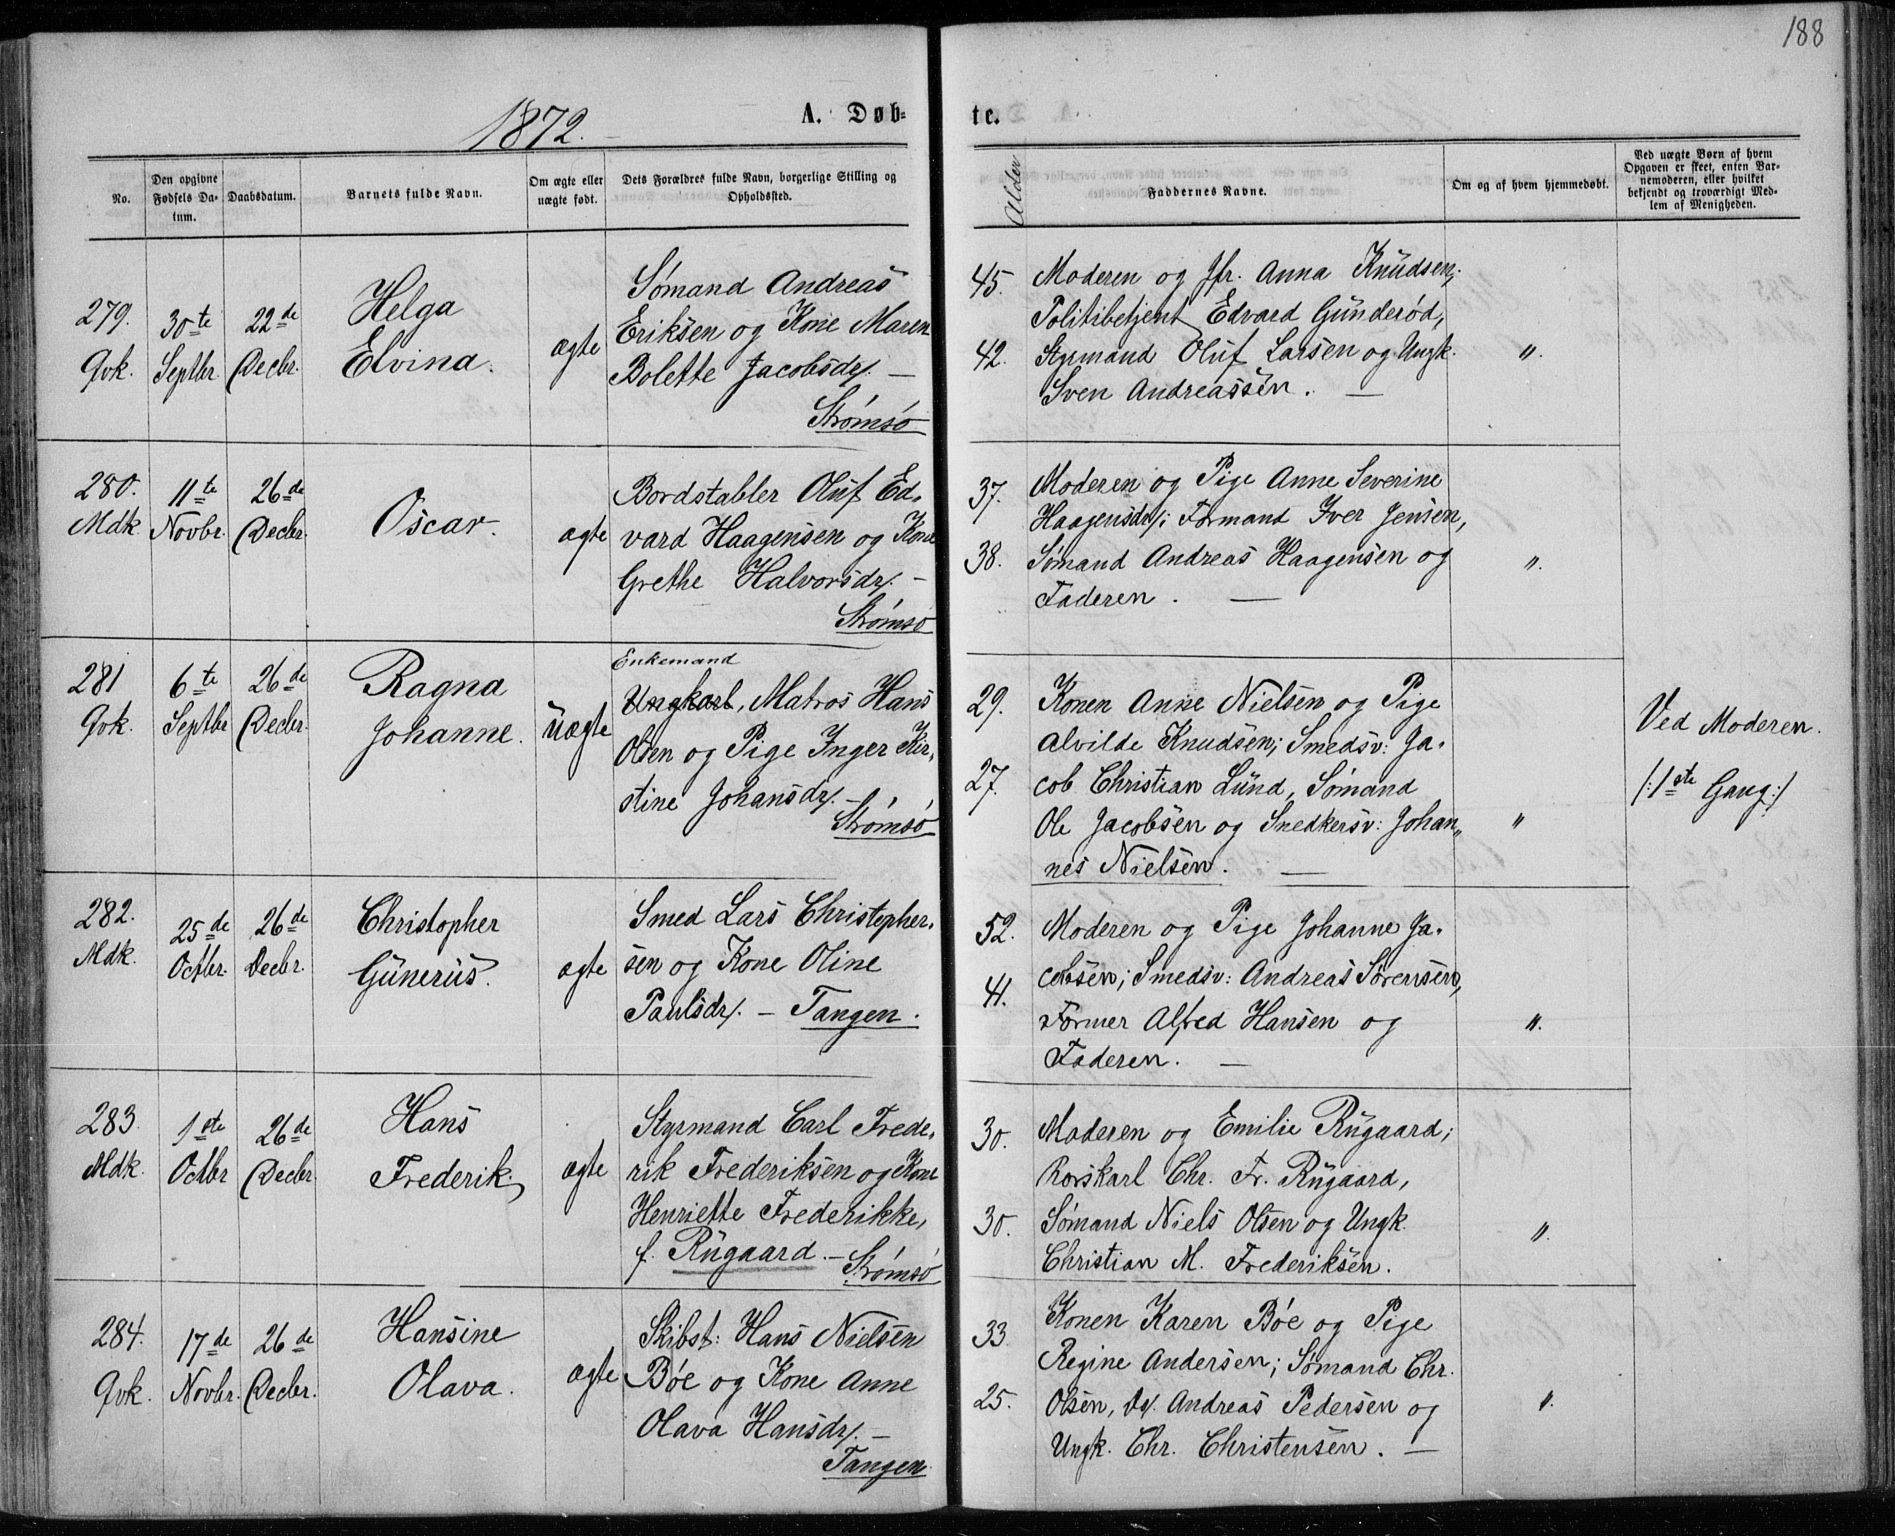 188
1872.
A. Døb-
te.
No.
Den opgivne
Fødsels Da-
tum.
Daabsdatum.
Barnets fulde Navn.
Om ægte eller
uægte født.
Dets Forældres fulde Navn, borgerlige Stilling og
Opholdssted.
Alder
Faddernes Navne.
Om og af hvem hjemmedøbt.
Ved uægte Børn af hvem
Opgaven er skeet, enten Bar-
nemoderen, eller hvilket
bekjendt og troværdigt Med-
lem af Menigheden.
279.
Qvk.
30te
Septbr.
22de
Decbr.
Helga
Elvina.
ægte
Sømand Andreas
Eriksen og Kone Maren
Bolette Jacobsdr. —
Strømsø
45.
42.
Moderen og Jfr. Anna Knudsen;
Politibetjent Edvard Gunderød,
Styrmand Oluf Larsen og Ungk.
Sven Andreassen. —
"
280.
Mdk.
11te
Novbr.
26de
Decbr.
Oscar.
ægte
Bordstabler Oluf Ed-
vard Haagensen og Kone
Grethe Halvorsdr. —
Strømsø
37.
38.
Moderen og Pige Anne Severine
Haagensdr.; Formand Iver Jensen,
Sømand Andreas Haagensen og
Faderen. —
"
281
Qvk.
6te
Septbr
26de
Decbr.
Ragna
Johanne.
uægte
Enkemand
Ungkarl, Matros Hans
Olsen og Pige Inger Kir-
stine Johansdr. —
Strømsø
29.
27.
Konen Anne Nielsen og Pige
Alvilde Knudsen; Smedsv: Ja-
cob Christian Lund, Sømand
Ole Jacobsen og Snedkersv: Johan-
nes Nielsen. —
"
Ved Moderen.
/:1ste Gang:/
282.
Mdk.
25de
Octbr.
26de
Decbr.
Christopher
Gunerius.
ægte
Smed Lars Christopher-
sen og Kone Oline
Paulsdr. — Tangen.
52.
41.
Moderen og Pige Johanne Ja-
cobsen; Smedsv: Andreas Sørensen,
Former Alfred Hansen og
Faderen. —
"
283.
Mdk.
1ste
Octbr
26de
Decbr.
Hans
Frederik.
ægte
Styrmand Carl Frede-
rik Frederiksen og Kone
Henriette Frederikke,
f. Rugaard. — Strømsø
30.
30.
Moderen og Emilie Rugaard;
Rorskarl Chr. Fr. Rugaard,
Sømand Niels Olsen og Ungk.
Christian M. Frederiksen.
"
284.
Qvk.
17de
Novbr.
26de
Decbr.
Hansine
Olava.
ægte
Skibst: Hans Nielsen
Bøe og Kone Anne
Olava Hansdr. —
Tangen
33
25.
Konen Karen Bøe og Pige
Regine Andersen; Sømand Chr.
Olsen, Do. Andreas Pedersen og
Ungk. Chr. Christensen. —
"